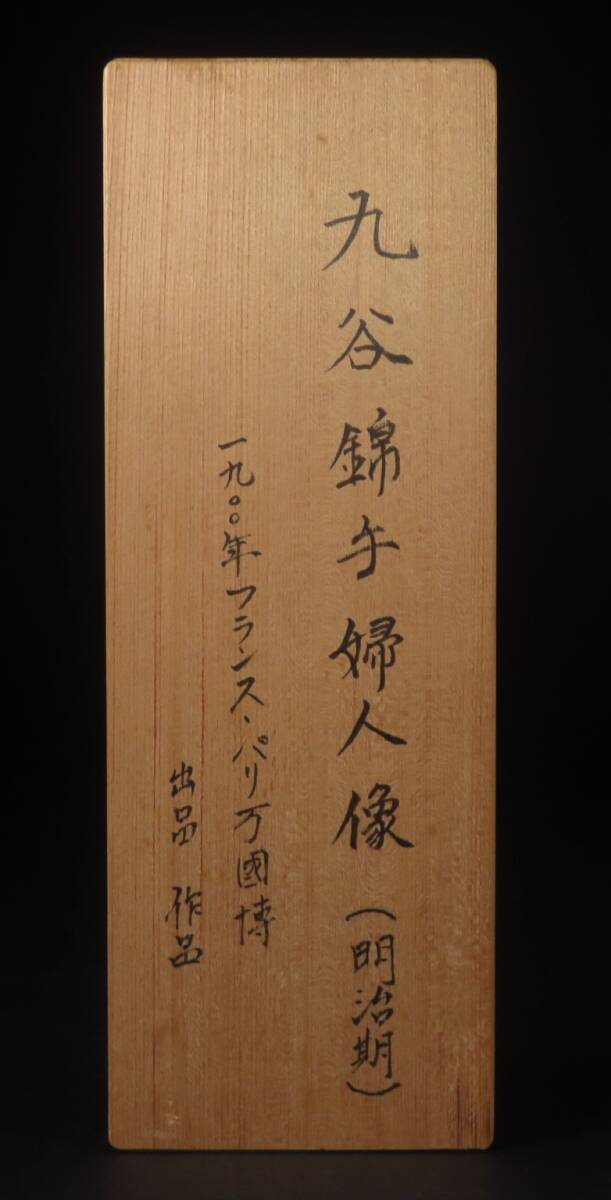 九谷錦手婦人像（明治期）
一九〇〇年フランス・パリ万國博
出品作品